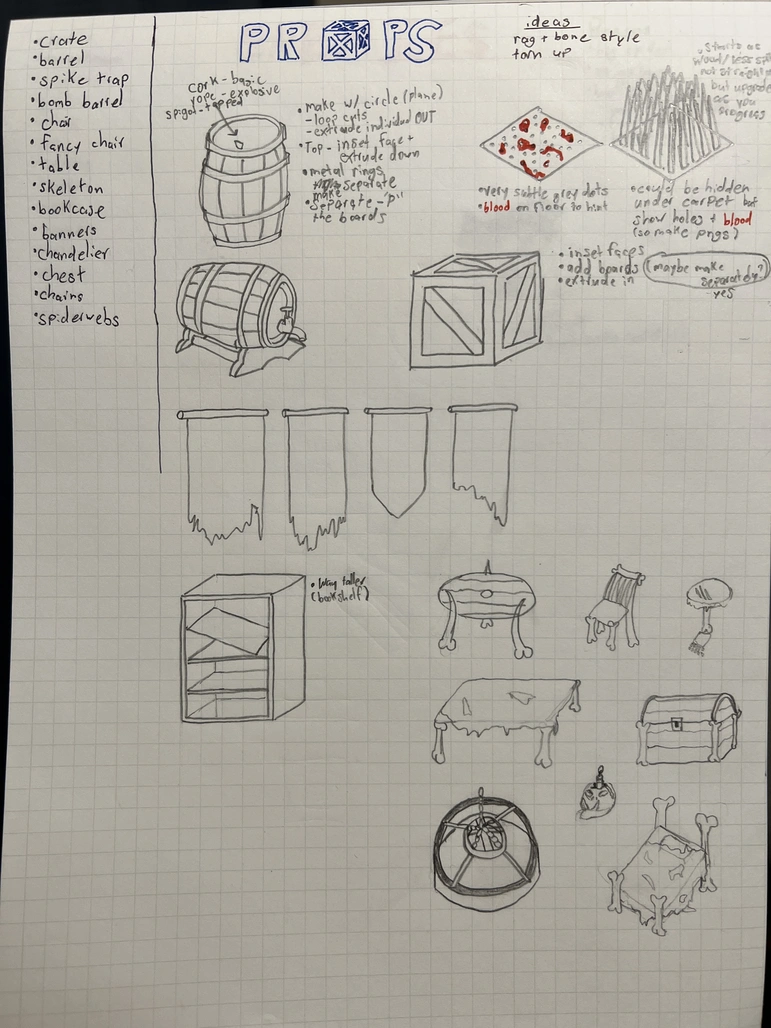 • crate
• barrel
• spike trap
• bomb barrel
• chair
• fancy chair
• table
• skeleton
• bookcase
• banners
• chandelier
• chest
• chains
• spiderwebs
PROPS
ideas
rag + bone style
torn up
cork - basic
rope - explosive
spigot - tapped
• make w/ circle (plane)
- loop cuts
- extrude individual OUT
• Top - inset face +
extrude down
• metal rings
separate
make
• separate - "p"
the boards
• very subtle grey dots
• blood on floor to hint
• starts as
wood/less spik
not straight
but upgrade
as you
progress
• could be hidden
under carpet but
show holes + blood
(so make pngs)
• inset faces
• add boards (maybe make
separately?
• extrude in
yes
• Way taller
(bookshelf)